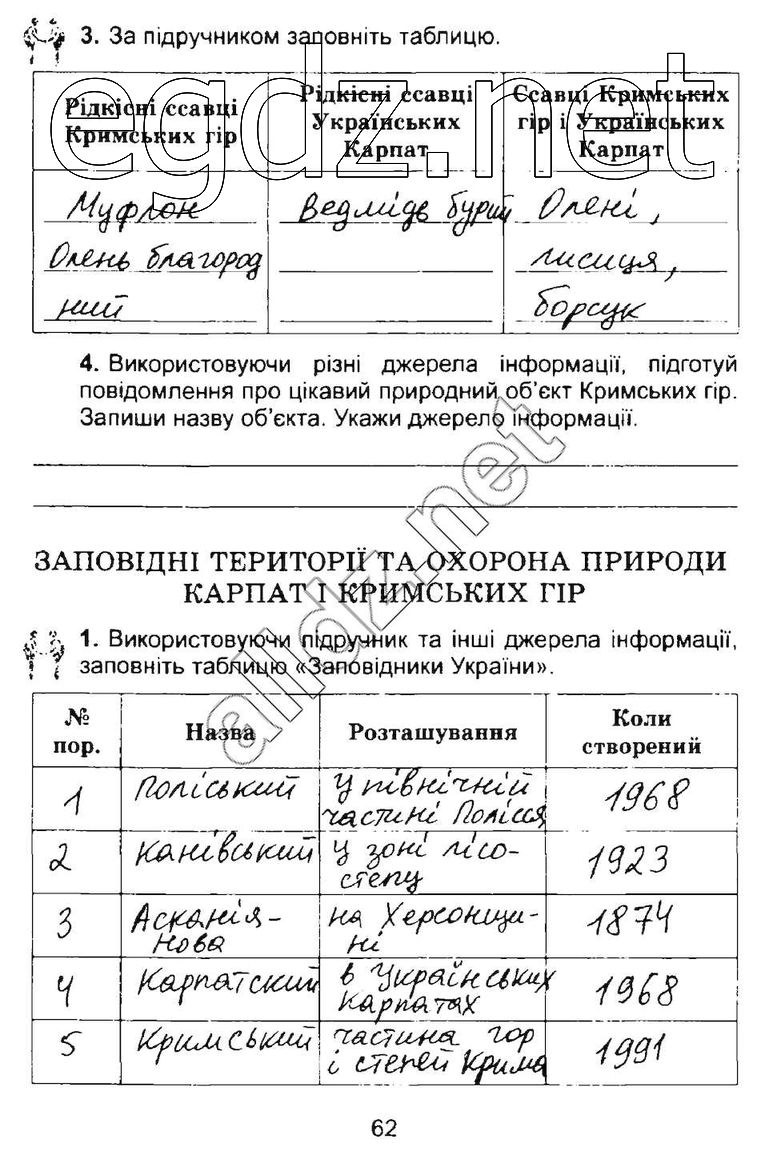 3. За підручником заповніть таблицю.
Рідкісні ссавці Кримських гір
Рідкісні ссавці Українських Карпат
Ссавці Кримських гір і Українських Карпат
Муфлон
Олень благород
ний
Ведмідь бурий
Олені,
лисиця,
борсук
egdz.net
4. Використовуючи різні джерела інформації, підготуй
повідомлення про цікавий природний об'єкт Кримських гір.
Запиши назву об'єкта. Укажи джерело інформації.
alldz.net
ЗАПОВІДНІ ТЕРИТОРІЇ ТА ОХОРОНА ПРИРОДИ
КАРПАТ І КРИМСЬКИХ ГІР
1. Використовуючи підручник та інші джерела інформації,
заповніть таблицю «Заповідники України».
№ пор. Назва Розташування Коли створений
1 Поліський У північній частині Полісся 1968
2 Канівський У зоні лісо-степу 1923
3 Асканія-Нова на Херсонщи-ні 1874
4 Карпатский в Українських карпатах 1968
5 Кримський частина гор і степей Крима 1991
62